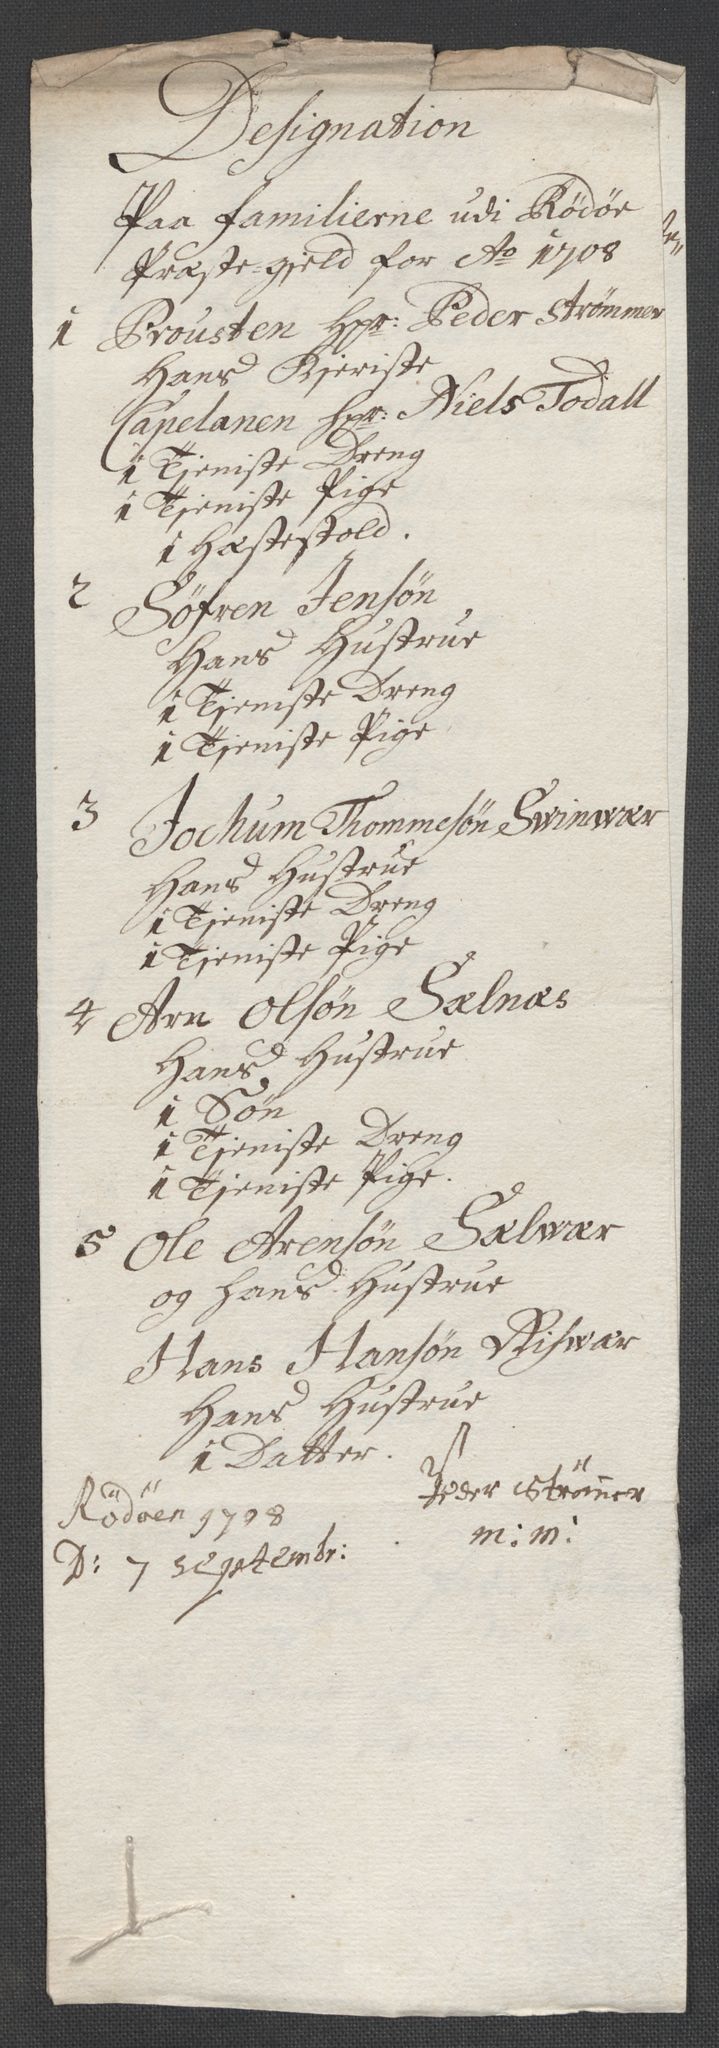 Designation
Paa familierne udi Rødøe
Præste-gield for Ao 1708
1 Prousten hr: Peder Strømmer
Hans Kjeriste
Capelanen hr: Niels Todall
1 Tjeniste Dreng
1 Tjeniste Pige
1 Hæstehold.
2 Søfren Jensøn
Hans Hustrue
1 Tjeniste Dreng
1 Tjeniste Pige
3 Jochum Thommesøn Swinwær
Hans Hustrue
1 Tjeniste Dreng
1 Tjeniste Pige
4 Arn Olsøn Sælnæs
Hans Hustrue
1 Søn
1 Tjeniste Dreng
1 Tjeniste Pige.
5 Ole Arensøn Sælwær
og hans Hustrue
Hans Hansøn Riswær
Hans Hustrue
1 Datter.
Rödöen 1708
D: 7 Septembr:
Peder Strömer
m: m: